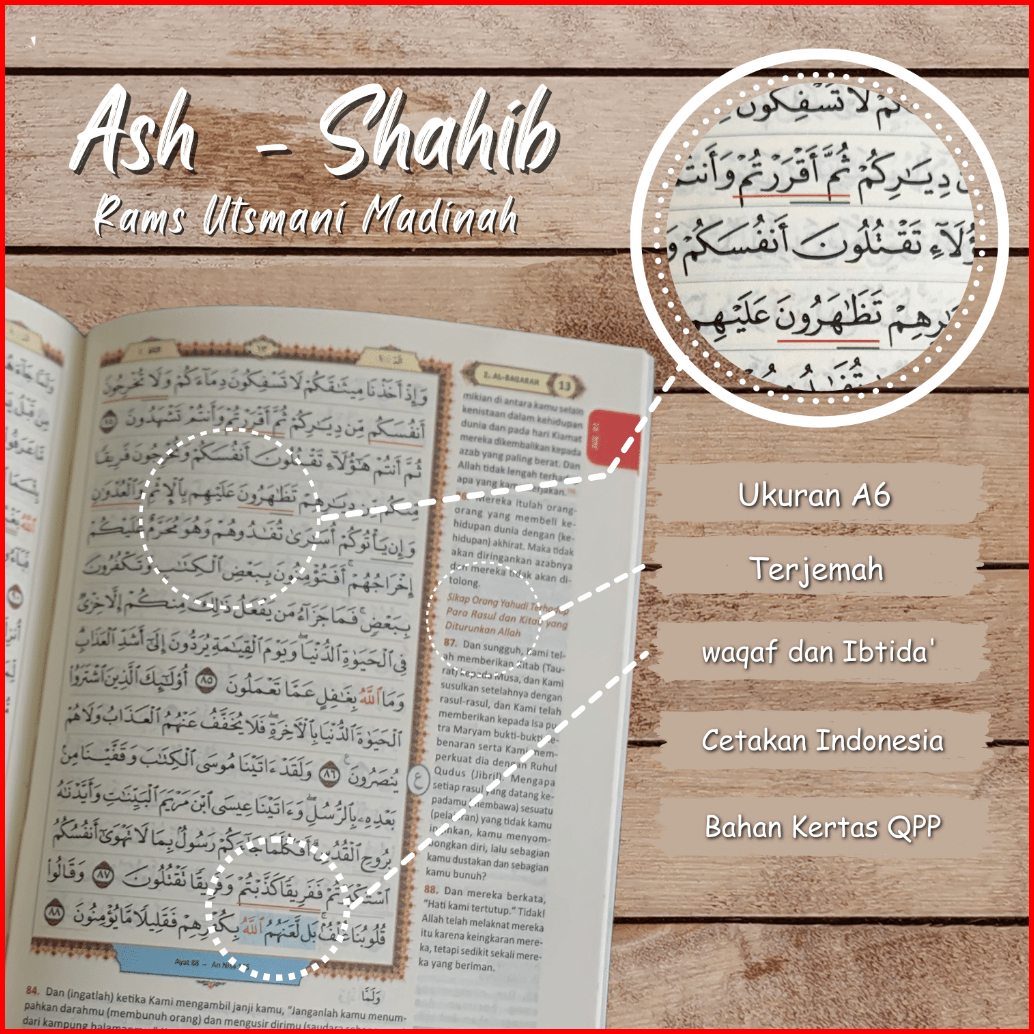 Ash - Shahib
Rams Utsmani Madinah
تُمْ لَا تَسْفِكُونَ
دِيَـٰرِكُمْ ثُمَّ أَقْرَرْتُمْ وَأَنتُمْ
ؤُلَآءِ تَقْتُلُونَ أَنفُسَكُمْ وَ
تَظَـٰهَرُونَ عَلَيْهِم
Ukuran A6
Terjemah
waqaf dan Ibtida'
Cetakan Indonesia
Bahan Kertas QPP
وَإِذْ أَخَذْنَا مِيثَـٰقَكُمْ لَا تَسْفِكُونَ دِمَآءَكُمْ وَلَا تُخْرِجُونَ
أَنفُسَكُم مِّن دِيَـٰرِكُمْ ثُمَّ أَقْرَرْتُمْ وَأَنتُمْ تَشْهَدُونَ ٨٤
ثُمَّ أَنتُمْ هَـٰٓؤُلَآءِ تَقْتُلُونَ أَنفُسَكُمْ وَتُخْرِجُونَ فَرِيقًا
مِّنكُم مِّن دِيَـٰرِهِمْ تَظَـٰهَرُونَ عَلَيْهِم بِٱلْإِثْمِ وَٱلْعُدْوَٰنِ
وَإِن يَأْتُوكُمْ أُسَـٰرَىٰ تُفَـٰدُوهُمْ وَهُوَ مُحَرَّمٌ عَلَيْكُمْ
إِخْرَاجُهُمْ ۚ أَفَتُؤْمِنُونَ بِبَعْضِ ٱلْكِتَـٰبِ وَتَكْفُرُونَ
بِبَعْضٍ ۚ فَمَا جَزَآءُ مَن يَفْعَلُ ذَٰلِكَ مِنكُمْ إِلَّا خِزْىٌ
فِى ٱلْحَيَوٰةِ ٱلدُّنْيَا ۖ وَيَوْمَ ٱلْقِيَـٰمَةِ يُرَدُّونَ إِلَىٰٓ أَشَدِّ ٱلْعَذَابِ ۗ
وَمَا ٱللَّهُ بِغَـٰفِلٍ عَمَّا تَعْمَلُونَ ٨٥ أُو۟لَـٰٓئِكَ ٱلَّذِينَ ٱشْتَرَوُا۟
ٱلْحَيَوٰةَ ٱلدُّنْيَا بِٱلْـَٔاخِرَةِ ۖ فَلَا يُخَفَّفُ عَنْهُمُ ٱلْعَذَابُ وَلَا هُمْ
يُنصَرُونَ ٨٦ وَلَقَدْ ءَاتَيْنَا مُوسَى ٱلْكِتَـٰبَ وَقَفَّيْنَا مِنۢ
بَعْدِهِۦ بِٱلرُّسُلِ ۖ وَءَاتَيْنَا عِيسَى ٱبْنَ مَرْيَمَ ٱلْبَيِّنَـٰتِ وَأَيَّدْنَـٰهُ
بِرُوحِ ٱلْقُدُسِ ۗ أَفَكُلَّمَا جَآءَكُمْ رَسُولٌۢ بِمَا لَا تَهْوَىٰٓ أَنفُسُكُمُ
ٱسْتَكْبَرْتُمْ فَفَرِيقًا كَذَّبْتُمْ وَفَرِيقًا تَقْتُلُونَ ٨٧ وَقَالُوا۟
قُلُوبُنَا غُلْفٌۢ ۚ بَل لَّعَنَهُمُ ٱللَّهُ بِكُفْرِهِمْ فَقَلِيلًا مَّا يُؤْمِنُونَ ٨٨
وَلَمَّا
2. AL-BAQARAH 13
mikian di antara kamu selain
kenistaan dalam kehidupan
dunia dan pada hari Kiamat
mereka dikembalikan kepada
azab yang paling berat. Dan
Allah tidak lengah terhadap
apa yang kamu kerjakan.
Mereka itulah orang-
orang yang membeli ke-
hidupan dunia dengan (ke-
hidupan) akhirat. Maka tidak
akan diringankan azabnya
dan mereka tidak akan di-
tolong.
Sikap Orang Yahudi Terhadap
Para Rasul dan Kitab yang
Diturunkan Allah
87. Dan sungguh, Kami tel-
ah memberikan Kitab (Tau-
rat) kepada Musa, dan Kami
susulkan setelahnya dengan
rasul-rasul, dan Kami telah
memberikan kepada Isa pu-
tra Maryam bukti-bukti ke-
benaran serta Kami mem-
perkuat dia dengan Ruhul
Qudus (Jibril). Mengapa
setiap rasul yang datang ke-
padamu (membawa) sesuatu
(pelajaran) yang tidak kamu
inginkan, kamu menyom-
bongkan diri, lalu sebagian
kamu dustakan dan sebagian
kamu bunuh?
88. Dan mereka berkata,
"Hati kami tertutup." Tidak!
Allah telah melaknat mereka
itu karena keingkaran mere-
ka, tetapi sedikit sekali mere-
ka yang beriman.
84. Dan (ingatlah) ketika Kami mengambil janji kamu, "Janganlah kamu menum-
pahkan darahmu (membunuh orang) dan mengusir dirimu (saudara
dari kampung halamanmu."